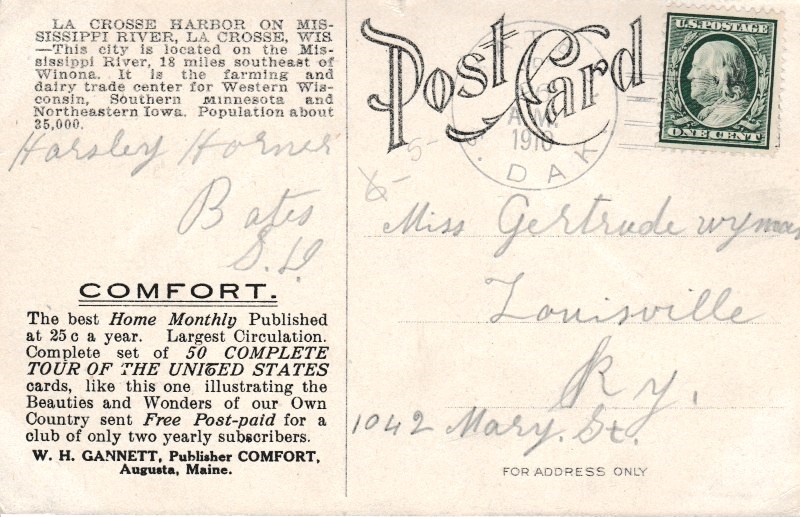 LA CROSSE HARBOR ON MIS-
SISSIPPI RIVER, LA CROSSE, WIS.
—This city is located on the Mis-
sissippi River, 18 miles southeast of
Winona. It is the farming and
dairy trade center for Western Wis-
consin, Southern Minnesota and
Northeastern Iowa. Population about
35,000.
Harsley Horner
Bates
S.D.
COMFORT.
The best Home Monthly Published
at 25c a year. Largest Circulation.
Complete set of 50 COMPLETE
TOUR OF THE UNITED STATES
cards, like this one illustrating the
Beauties and Wonders of our Own
Country sent Free Post-paid for a
club of only two yearly subscribers.
W. H. GANNETT, Publisher COMFORT,
Augusta, Maine.
Post Card
A.M.
1910
DAK.
U.S. POSTAGE
ONE CENT
Miss Gertrude Wyman
Louisville
Ky.
1042 Mary. St.
FOR ADDRESS ONLY